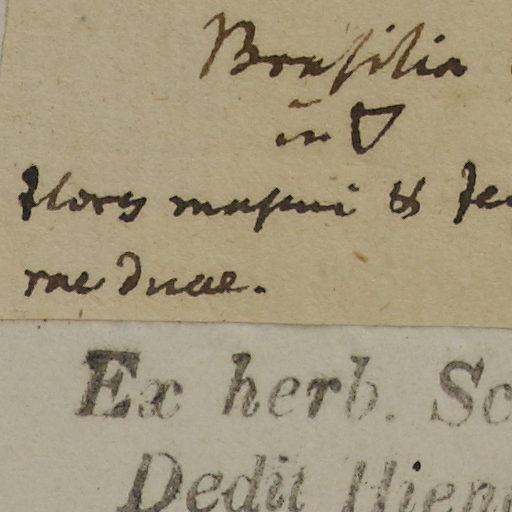 Brasilia
in ▽
flores masculi & fe
rae duae.
Ex herb. Sc
Dedit Hien